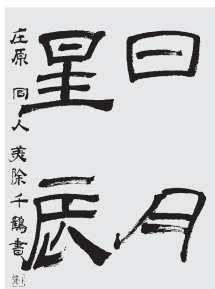 日月
星辰
庄原 同人 美除千鶴書